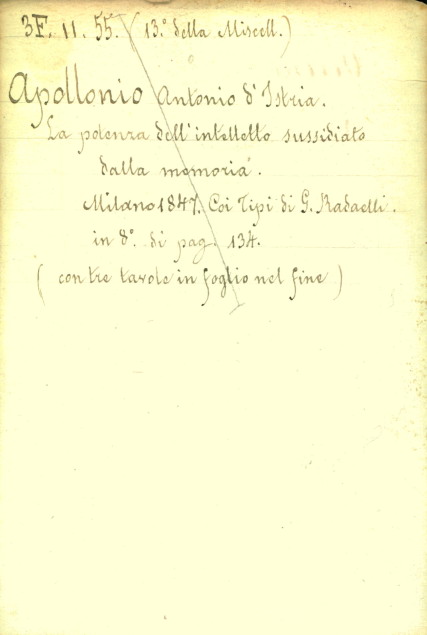 3F. 11. 55. (13.º della Miscell.)
Apollonio Antonio d'Istria.
La potenza dell'intelletto sussidiato
dalla memoria.
Milano 1847. Coi Tipi di G. Radaelli.
in 8º. di pag. 134.
(con tre tavole in foglio nel fine)